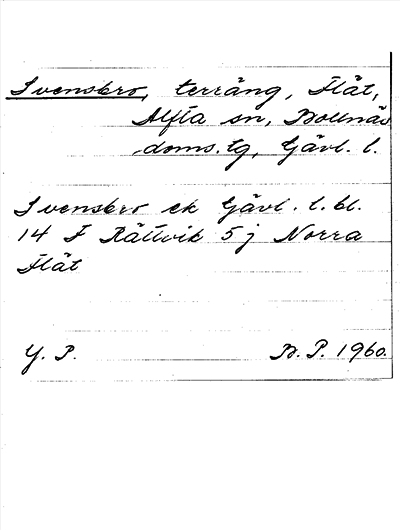 Svensbro, terräng, Flät,
Alfta sn, Bollnäs
doms.tg, Gävl. l.
Svensbro ek Gävl. l. bl.
14 F Rättvik 5 j Norra
Flät
Y. P. B. P. 1960.